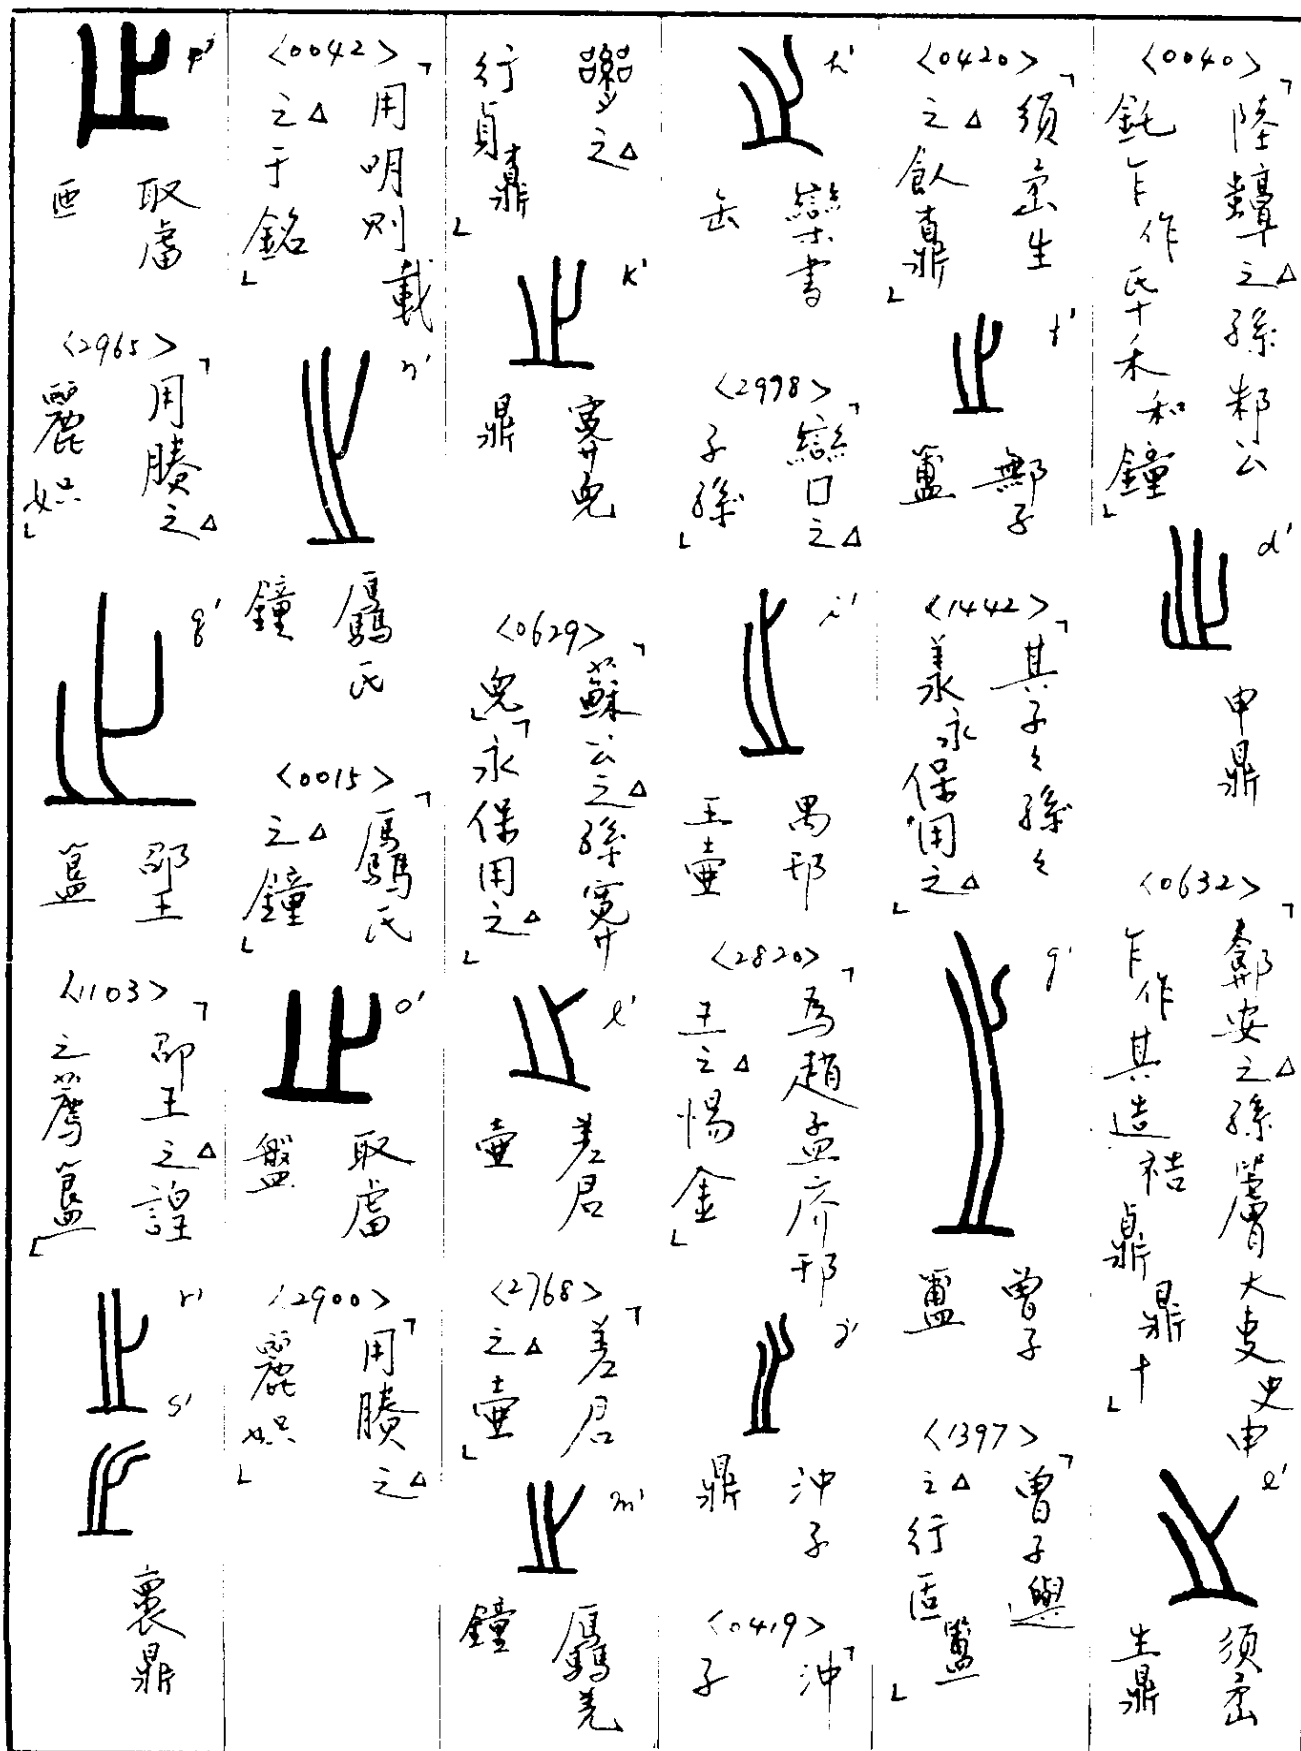 <0040>
「陸𧊒之△孫邾公
釛乍作氒禾和鐘」
d'
申鼎
<0632>
安之△孫大叓史申
乍作其造祰鼎十」
e'
須䜌
生鼎
<0420>
「須䜌生
之△飤鼎」
f'
鄦子
簠
<1442>
「其子々孫々
羕永保用之△」
g'
曾子
簠
<1397>
「曾子𨗴
之△行匿簠」
h'
欒書
缶
<2998>
「䜌口之△
子孫」
i'
禺邗
王壺
<2820>
「為趙孟庎邗
王之△惕金」
j'
沖子
鼎
<0419>
「沖
子
之△
行貞鼎」
k'
寬兒
鼎
<0629>
「蘇公之△孫寬
兒」「永保用之△」
l'
差君
壺
<2768>
「差君
之△壺」
m'
羌
鐘
<0042>
「用明則載
之△于銘」
n'
氏
鐘
<0015>
「氏
之△鐘」
o'
取虘
盤
<2900>
「用賸之△
麗」
p'
取虘
匜
<2965>
「用賸之△
麗」
q'
卲王
簋
<1103>
「卲王之△諻
之薦簋」
r'
s'
褱鼎